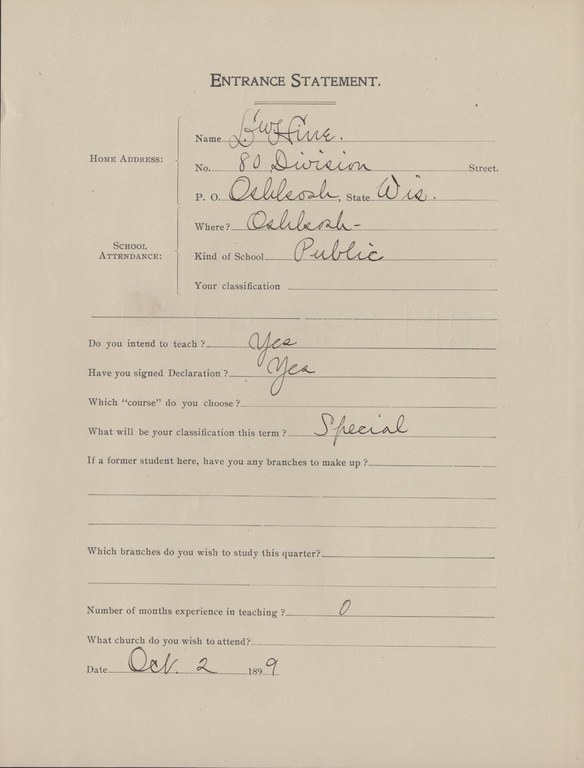 ENTRANCE STATEMENT.
HOME ADDRESS:
Name L W Hine.
No. 80 Division Street.
P. O. Oshkosh, State Wis.
SCHOOL ATTENDANCE:
Where? Oshkosh-
Kind of School Public
Your classification
Do you intend to teach? Yes
Have you signed Declaration? Yes
Which "course" do you choose?
What will be your classification this term? Special
If a former student here, have you any branches to make up?
Which branches do you wish to study this quarter?
Number of months experience in teaching? 0
What church do you wish to attend?
Date Oct. 2 1899